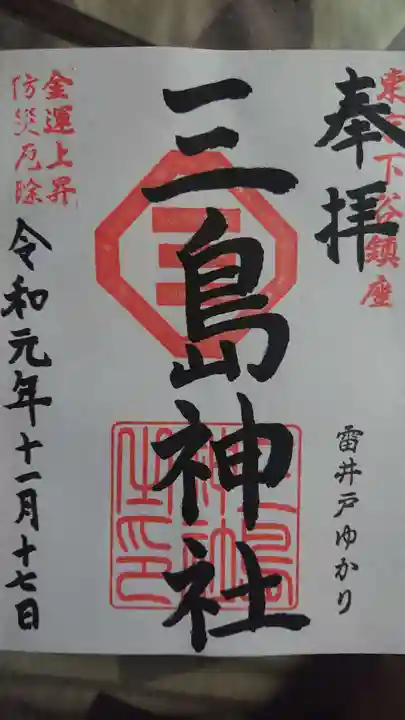 東京下谷鎮座
奉拝
雷井戸ゆかり
三島神社
三
三島神社之印
金運上昇
防災厄除
令和元年十一月十七日